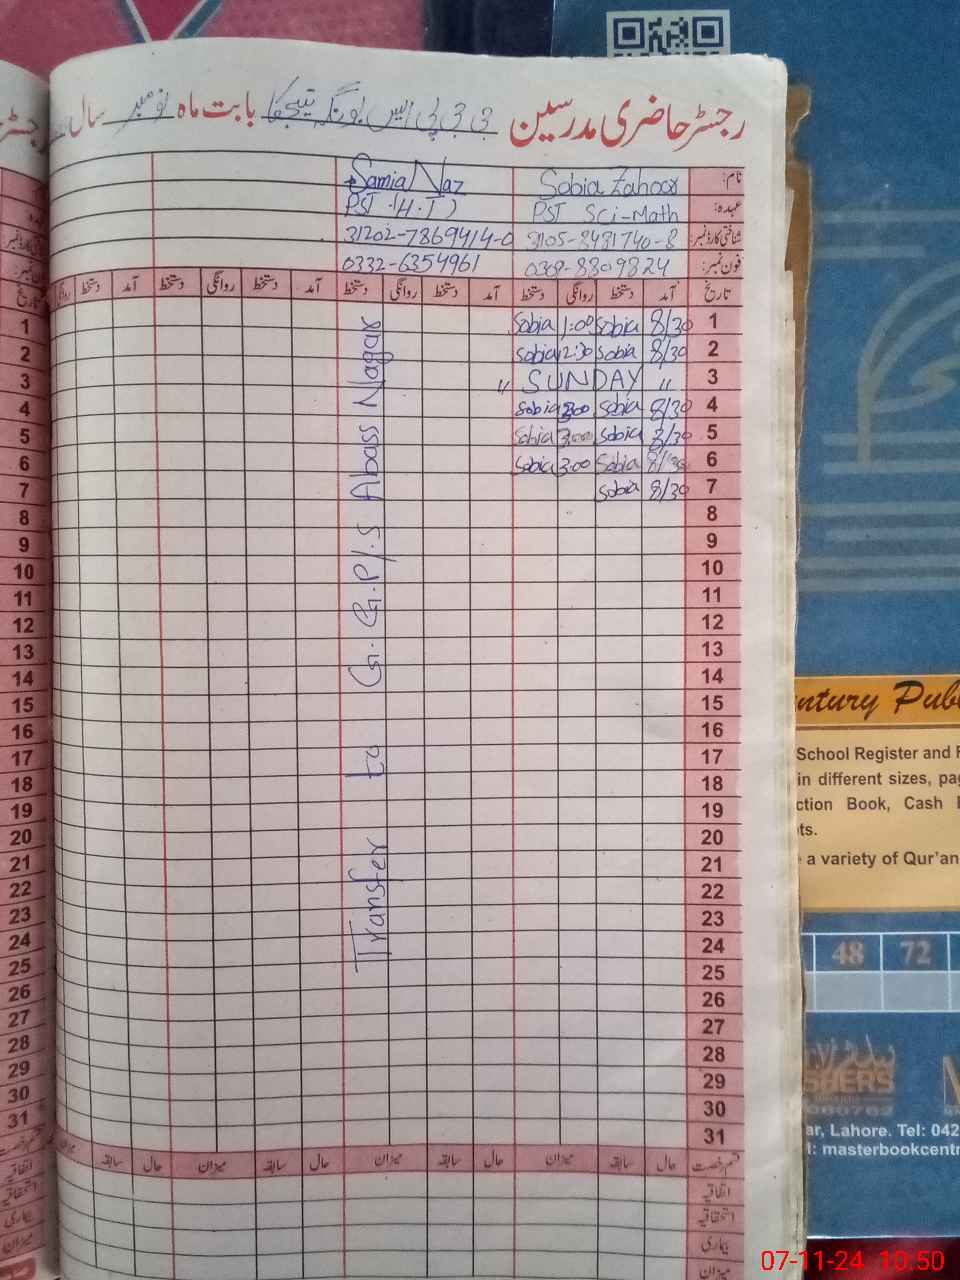 رجسٹر حاضری مدرسین جی جی پی ایس بابت ماہ نومبر سال
نام: Sobia Zahoor Samia Naz
عہدہ: PST Sci-Math PST (H.T)
شناختی کارڈ نمبر: 3105-8481740-8 31202-7869414-0
فون نمبر: 0308-8809824 0332-6354961
تاریخ آمد دستخط روانگی دستخط آمد دستخط روانگی دستخط آمد دستخط روانگی دستخط آمد دستخط روانگی
1 8/30 Sobia 1:00 Sobia
2 8/30 Sobia 12:30 Sobia
3 " SUNDAY "
4 8/30 Sobia 3:00 Sobia
5 8/30 Sobia 3:00 Sobia
6 8/30 Sobia 3:00 Sobia
7 8/30 Sobia
8
9
10
11
12
13
14
15
16
17
18
19
20
21
22
23
24
25
26
27
28
29
30
31
Transfer to G.G.P/.S Abass Nagar
قسم رخصت حال سابقہ میزان حال سابقہ میزان حال سابقہ میزان حال سابقہ
اتفاقیہ
استحقاقیہ
بیماری
میزان
1
2
3
4
5
6
7
8
9
10
11
12
13
14
15
16
17
18
19
20
21
22
23
24
25
26
27
28
29
30
31
ntury Publ
School Register and
in different sizes, pag
ction Book, Cash
ts.
a variety of Qur'an
48 72
SHERS
ar, Lahore. Tel: 042
l: masterbookcent
07-11-24 10:50